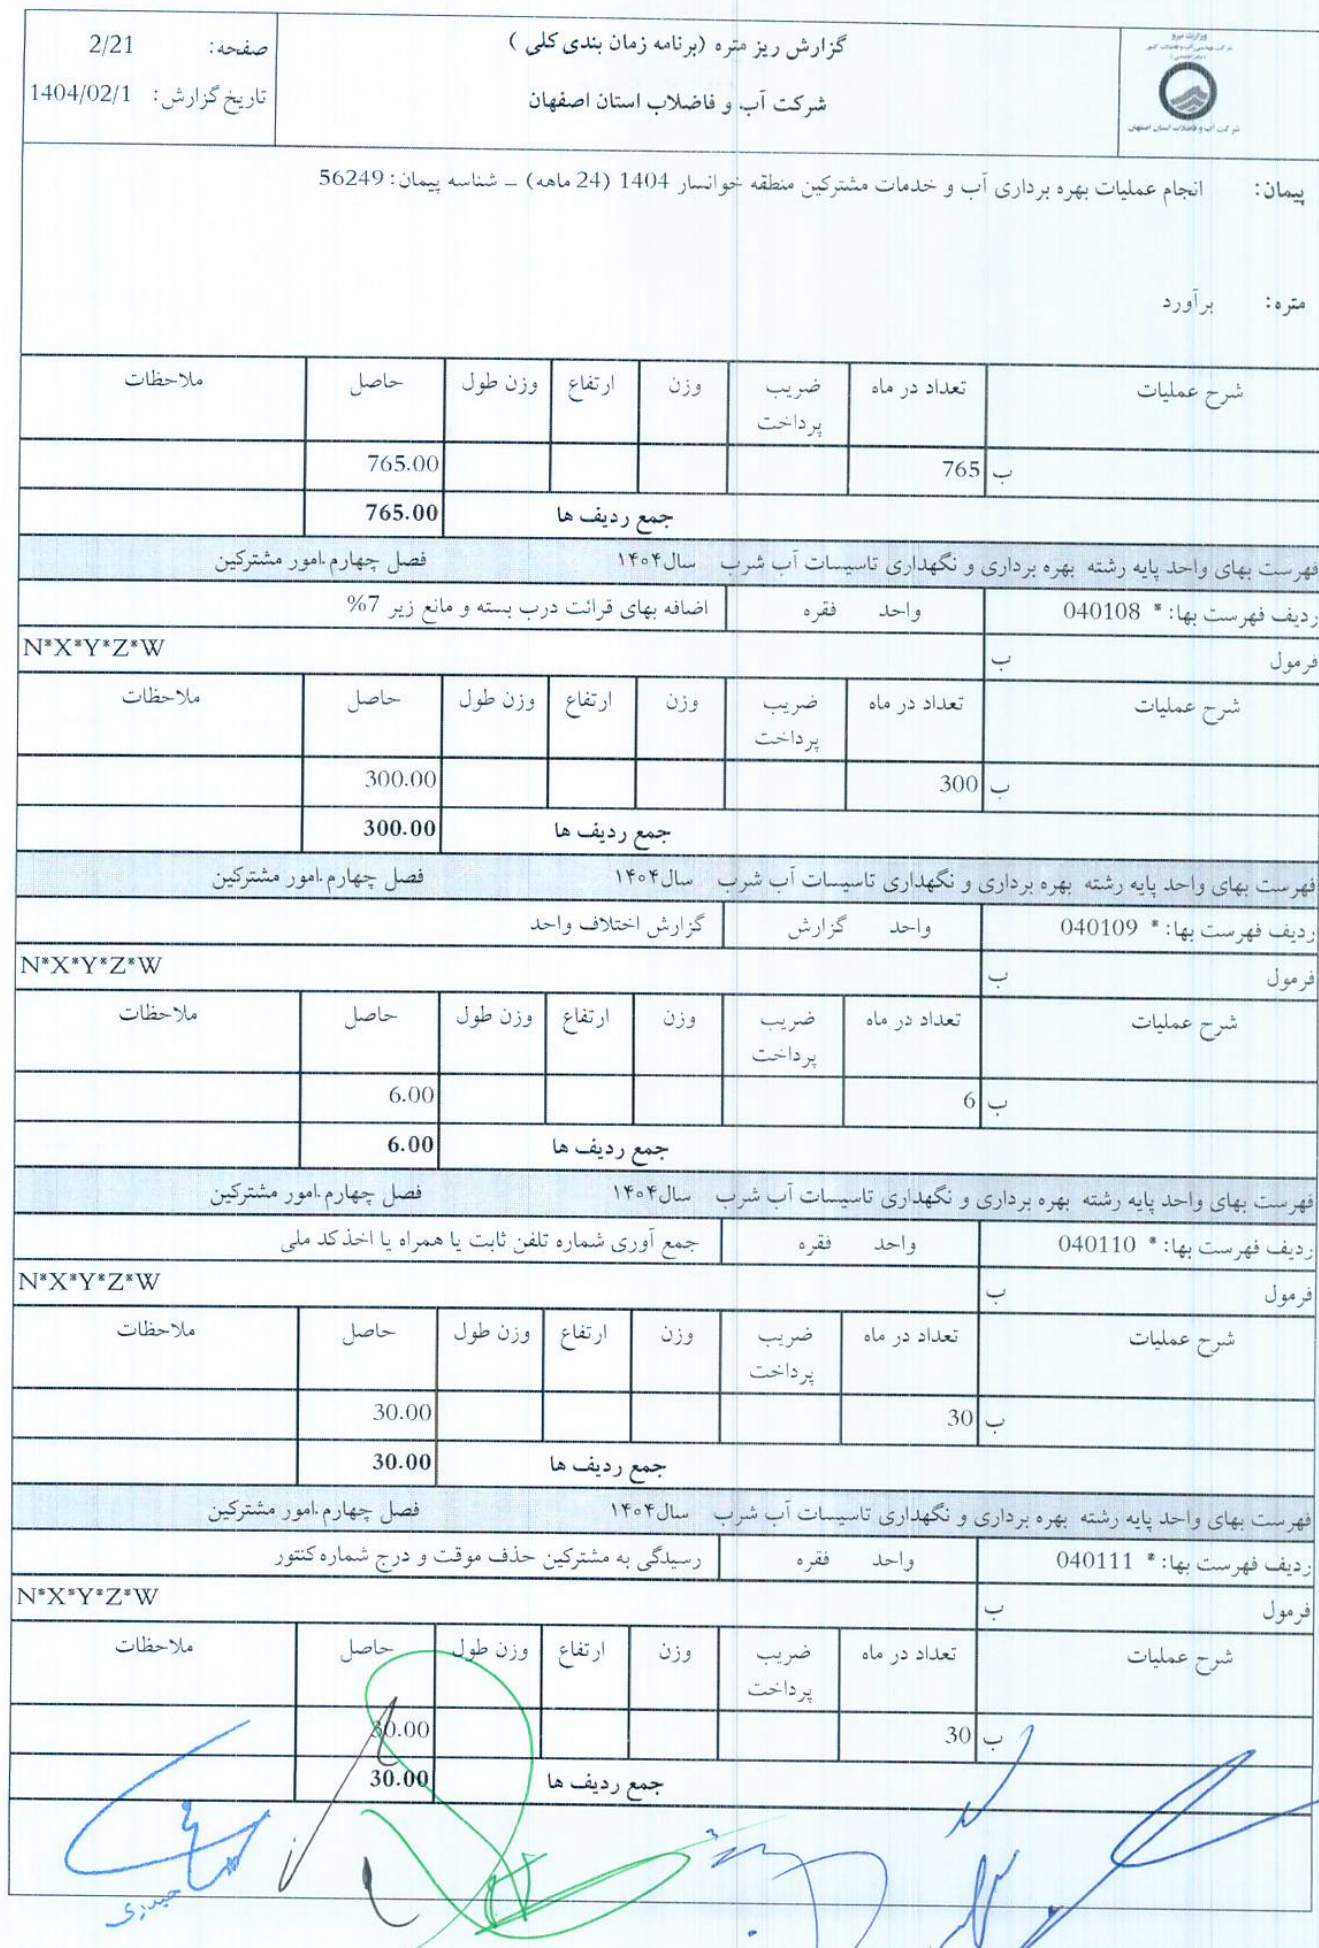 گزارش ریز متره (برنامه زمان بندی کلی )
صفحه: 2/21
شرکت آب و فاضلاب استان اصفهان
تاریخ گزارش: 1404/02/1
وزارت نیرو
شرکت آب و فاضلاب استان اصفهان
پیمان: انجام عملیات بهره برداری آب و خدمات مشترکین منطقه خوانسار 1404 (24 ماهه) _ شناسه پیمان: 56249
متره: برآورد
شرح عملیات تعداد در ماه ضریب پرداخت وزن ارتفاع وزن طول حاصل ملاحظات
ب 765 765.00
جمع ردیف ها 765.00
فهرست بهای واحد پایه رشته بهره برداری و نگهداری تاسیسات آب شرب سال۱۴۰۴ فصل چهارم.امور مشترکین
ردیف فهرست بها: * 040108 واحد فقره اضافه بهای قرائت درب بسته و مانع زیر 7%
فرمول ب N*X*Y*Z*W
شرح عملیات تعداد در ماه ضریب پرداخت وزن ارتفاع وزن طول حاصل ملاحظات
ب 300 300.00
جمع ردیف ها 300.00
فهرست بهای واحد پایه رشته بهره برداری و نگهداری تاسیسات آب شرب سال۱۴۰۴ فصل چهارم.امور مشترکین
ردیف فهرست بها: * 040109 واحد گزارش گزارش اختلاف واحد
فرمول ب N*X*Y*Z*W
شرح عملیات تعداد در ماه ضریب پرداخت وزن ارتفاع وزن طول حاصل ملاحظات
ب 6 6.00
جمع ردیف ها 6.00
فهرست بهای واحد پایه رشته بهره برداری و نگهداری تاسیسات آب شرب سال۱۴۰۴ فصل چهارم.امور مشترکین
ردیف فهرست بها: * 040110 واحد فقره جمع آوری شماره تلفن ثابت یا همراه یا اخذ کد ملی
فرمول ب N*X*Y*Z*W
شرح عملیات تعداد در ماه ضریب پرداخت وزن ارتفاع وزن طول حاصل ملاحظات
ب 30 30.00
جمع ردیف ها 30.00
فهرست بهای واحد پایه رشته بهره برداری و نگهداری تاسیسات آب شرب سال۱۴۰۴ فصل چهارم.امور مشترکین
ردیف فهرست بها: * 040111 واحد فقره رسیدگی به مشترکین حذف موقت و درج شماره کنتور
فرمول ب N*X*Y*Z*W
شرح عملیات تعداد در ماه ضریب پرداخت وزن ارتفاع وزن طول حاصل ملاحظات
ب 30 30.00
جمع ردیف ها 30.00
حیدری